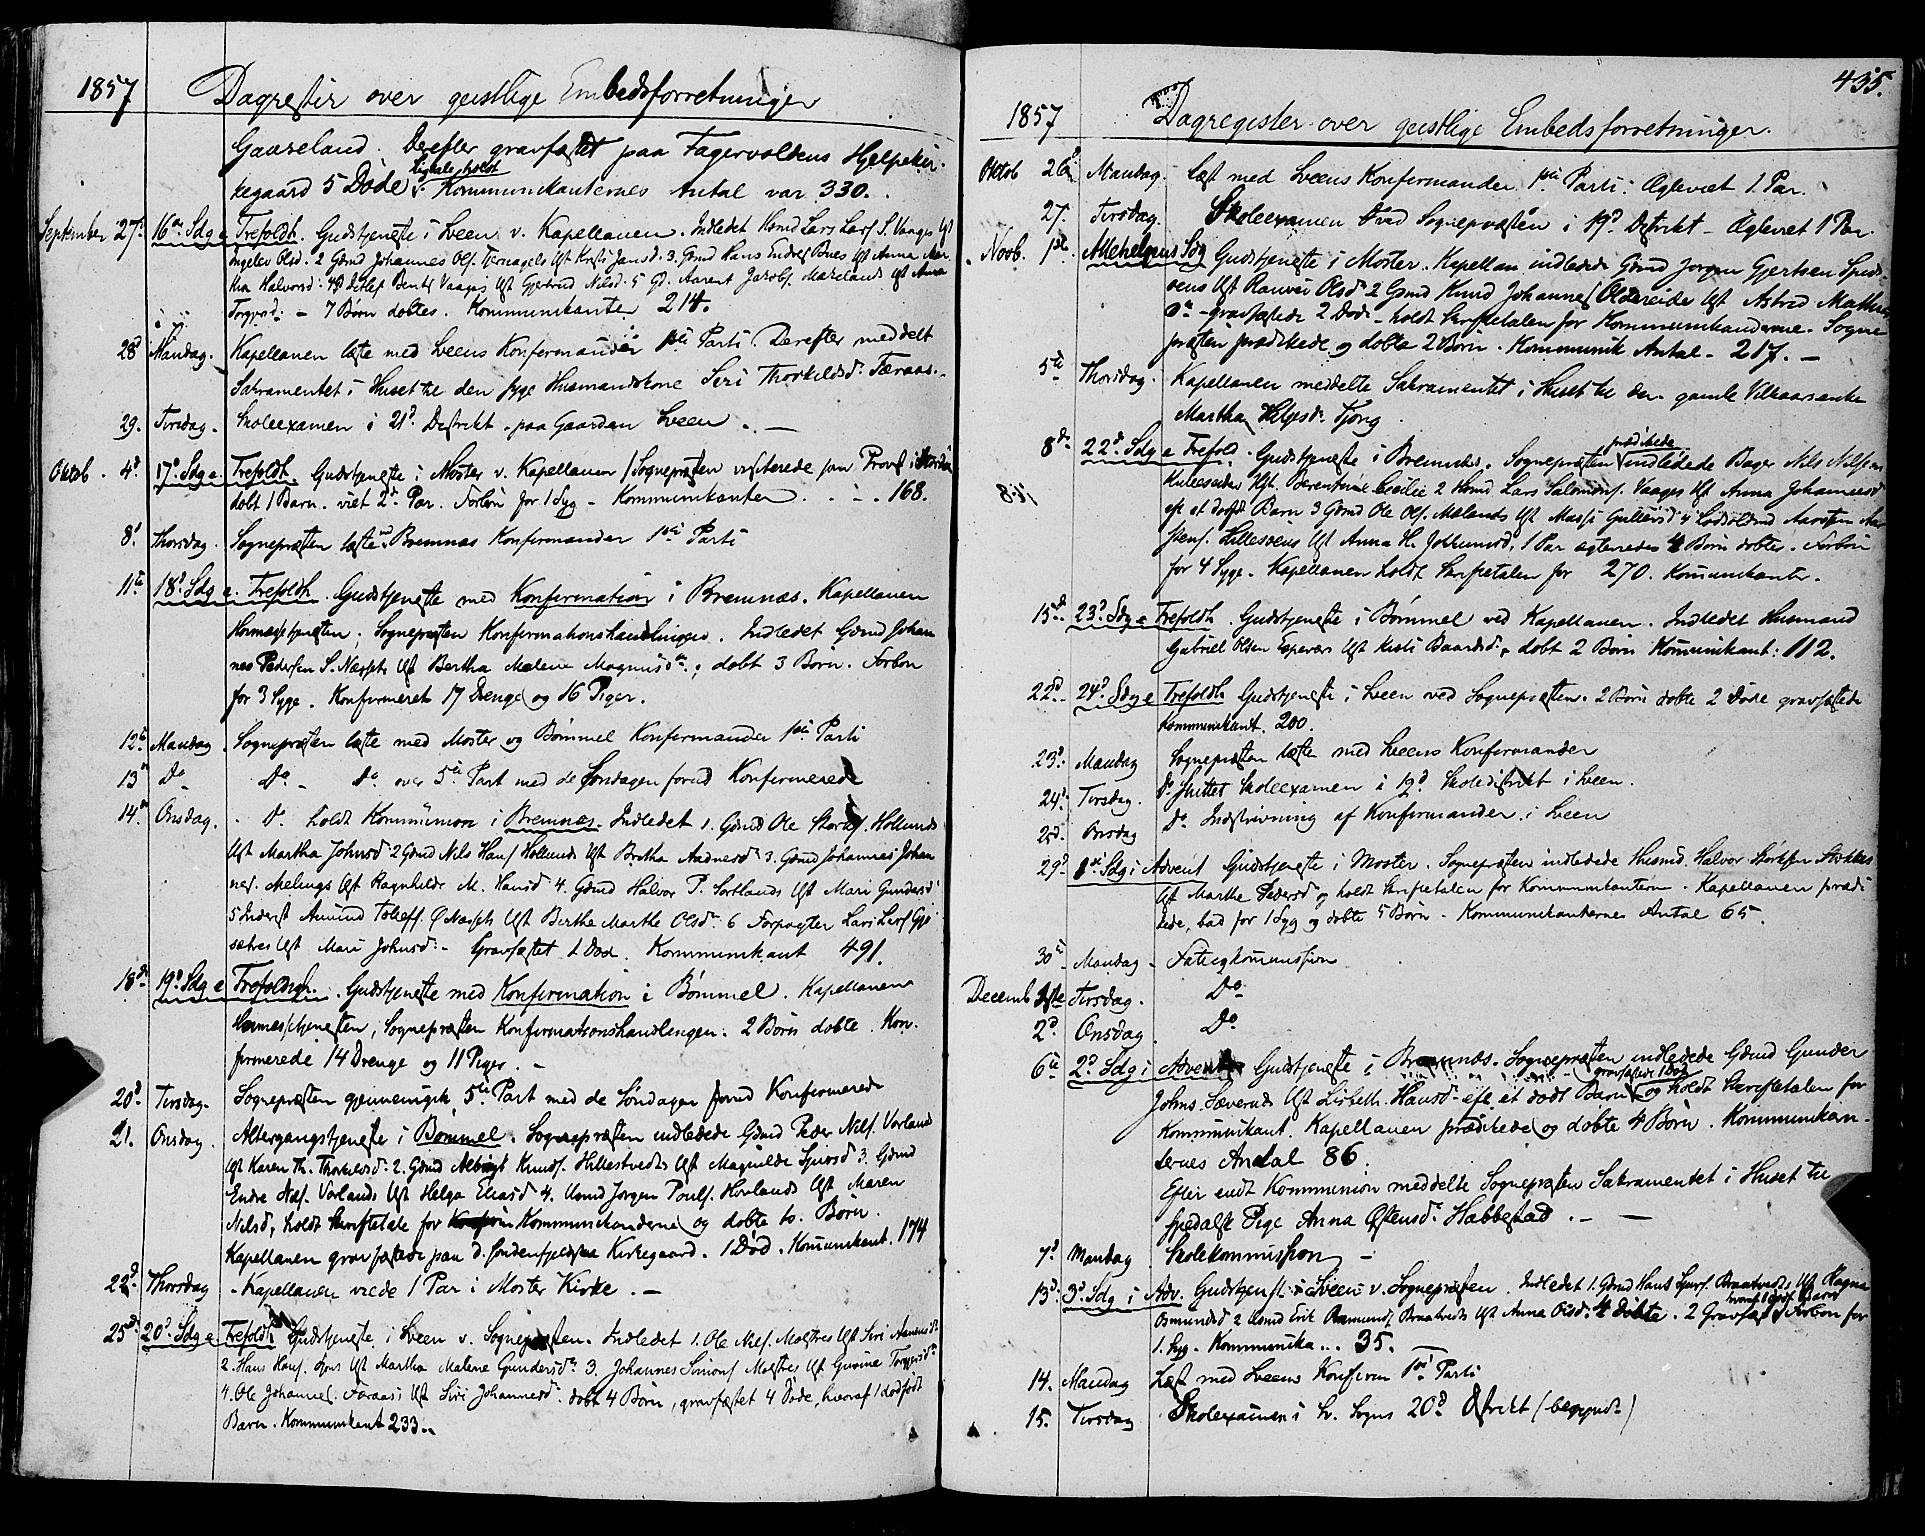 1857 Dagregister over geistlige Embedsforretninger
Gaaseland. Derefter gravfæstet paa Fagervoldens Hjelpekir-
Ligtale holdt
kegaard 5 Døde. Kommunikanternes Antal var 330.
September 27. 16de Sdg e Trefoldh. Gudstjeneste i Sveen v. Kapellanen. Indledet Hsmd Lars Lars S. Vaages Hst
Ingelev Olsd. 2 Gdmd Johannes Ols. Tjernagels Hst Kirsti Jansd. 3. Gdmd Hans Endres Bues Hst Anna Mar-
tha Halvorsd: 4 Detlef Bents Vaages Hst Gjertrud Nilsd. 5 Aarent Jacobs. Mareland Hst Anna
Torgersd: – 7 Børn døbtes. Kommunikanter 214.
28d Mandag. Kapellanen læste med Sveens Konfermander 1ste Parti. Derefter meddelt
Sakramentet i Huset til den syge Husmandskone Siri Thorkildsd. Færaas.
29. Tirsdag. Skoleexamen i 21d Distrikt paa Gaarden Sveen. –
Oktob. 4d 17d Sdg e Trefoldh. Gudstjeneste i Moster v. Kapellanen / Sognepræsten visiterede som Provst i
døbt 1 Barn. viet 2d Par. Forbøn for 1 Syg – Kommunikanter . . . 168.
8d Thorsdag. Sognepræsten læste Bremnæs Konfermander 1ste Parti
11te 18d Sdg e. Trefoldh. Gudstjeneste med Konfirmation i Bremnæs. Kapellanen
Høimessetjenesten, Sognepræsten Konfirmationshandlingen. Indledet Gdmd Johan
nes Pedersen S. Næsset Hst Bertha Malene Magnusd; døbt 3 Børn. Forbøn
for 3 Syge. Konfirmeret 17 Drenge og 16 Piger.
12te Mandag. Sognepræsten læste med Moster og Bømmel Konfermander 1ste Parti
13de Do Do – Do over 5te Part med de Søndagen forud Konfirmerede
14de Onsdag. Do holdt Kommunion i Bremnæs. Indledet 1. Gdmd Ole Hollunds
Hst Martha Johnsd 2 Gdmd Nils Hans Hollunds Hst Bertha Andersd 3. Gdmd Johannes Johan
nes. Mælings Hst Ragnhilde M. Hansd 4. Gdmd Halvor P. Sortlands Hst Mari Gundersd
5 Inderst Amund Tollefs. Næssets Hst Berthe Marthe Olsd. 6 Forpagter Lars Lars Gjø
sæters Hst Mari Johnsd. – Gravfæstet 1 Død. Kommunikant 491.
18de 19d Sdg e Trefoldigh. Gudstjeneste med Konfirmation i Bømmel. Kapellanen
Høimessetjenesten, Sognepræsten Konfirmationshandlingen. 2 Børn døbte. Kon-
firmerede 14 Drenge og 11 Piger. –
20d Tirsdag. Sognepræsten gjennemgik 5te Part med de Søndagen forud Konfirmerede
21. Onsdag. Altergangstjeneste i Bømmel. Sognepræsten indledede Gdmd Peder Nels. Vorland
Hst Karen Th. Thorkildsd: 2. Gdmd Albrigt Knuds. Hillestvedts Hst Magnilde Sjursd 3. Gdmd
Endre Nils. Vorlands Hst Helga Eliasd 4. Hsmd Jørgen Pouls. Hovlands Hst Maren
Nilsd, holdt Skriftetale for Kommunikanderne og døbte to. Børn.
Kapellanen gravfæstede paa d. Søndenfjeldske Kirkegaard. 1 Død. Kommunikant. 174
22d Thorsdag – Kapellanen viede 1 Par i Moster Kirke. –
25d 20d Sdg e Trefoldh Gudstjeneste i Sveen v. Sognepræsten. Indledet 1. Ole Nils. Mæstres Hst Siri Aanensd
2. Hans Hans. Hst Martha Malene Gundersd 3. Johannes Simons Mæstres Hst Gurine Torgersd
4. Ole Johannes. Færaas Hst Siri Johannesd. døbt 4 Børn, gravfæstet 4 Døde, hvoraf 1 dødfødt
Barn. Kommunikant 233.
435.
1857 Dagregister over geistlige Embedsforretninger.
Oktob 26d Mandag. Læst med Sveens Konfermander 1ste Parti. Ægteviet 1 Par.
27. Tirsdag. Skoleexamen ved Sognepræsten i 19d Distrikt – Ægteviet 1 Par.
Novb. 1ste Allehelgens Sdg Gudstjeneste i Moster. Kapellan indledede Gdmd Jørgen Gjertsen Spids-
øens Hst Ranvei Olsd 2 Gdmd Knud Johannes Oldereide Hst Astrid Mathias
d – gravfæstede 2 Døde – holdt Skriftetalen for Kommunikanderne. Sogne
præsten prædikede og døbte 2 Børn. Kommunik Antal – 217. –
5te Thorsdag. Kapellanen meddelte Sakramentet i Huset til den gamle Vilkaarsenke
Martha Helgesd. Tjong.
8de 22d Sdg e Trefold. Gudstjeneste i Bremnæs. Sognepræsten prædikede indledede Bager Nils Nilsen
Kulleseidet Hst. Berentine Cecilie 2 Hsmd Lars Salomons. Vaages Hst Anna Johannesd
ef. et dødf. Barn 3 Gdmd Ole Ols. Mælands Hst Massi Gullecsd 4 Losoldmd Aarsten Aar
stens. Lillesøens Hst Anna H. Jokkumsd, 1 Par ægteviedes 4 Børn døbtes. Forbøn
for 4 Syge. Kapellanen holdt Skriftetalen for 270. Kommunikanter.
15de 23d Sdg e Trefoldh. Gudstjeneste i Bømmel ved Kapellanen. Indledet Husmand
Gabriel Olsen Espevær Hst Kirsti Baardsd., døbt 2 Børn Kommunikant: 112.
22d 24d Sdg e Trefoldh. Gudstjeneste i Sveen ved Sognepræsten. 2 Børn døbte 2 Døde gravfæstede
Kommunikant. 200.
23d Mandag Sognepræsten læste med Sveens Konfermander
24d Tirsdag. Do sluttet Skoleexamen i 19d Skoledistrikt i Sveen.
25d. Onsdag Do Indskrivning af Konfermander i Sveen
29d 1ste Sdg i Advent Gudstjeneste i Moster. Sognepræsten indledede Husmd. Halvor Størksen Stokkes
Hst Marthe Pedersd og holdt Skriftetalen for Kommunikanterne. Kapellanen prædi
kede, bad for 1 Syg og døbte 5 Børn. Kommunikanternes Antal 65.
30te Mandag – Fattigkommission
Decemb 1ste Tirsdag. Do
2d. Onsdag Do
6te 2d Sdg i Advent Gudstjeneste i Bremnæs. Sognepræsten indledede Gdmd Gunder
gravfæstede 1 Død
Johns. Sæveruds Hst Lisbeth Hansd efr et dødf Barn og holdt Skriftetalen for
Kommunikant. Kapellanen prædikede og døbte 4 Børn. Kommunikan-
ternes Antal 86.
Efter endt Kommunion meddelte Sognepræsten Sakramentet i Huset til
spedalsk Pige Anna Østensd. Habbestad. –
7d Mandag Skolekommission –
13d. 3d. Sdg i Adv. Gudstjenst. i Sveen v. Sognepræsten. Indledet 1. Gdmd Hans Sjurs. Braatveds Hst Ragna
hvoraf 1 dødf. Barn
Osmundsd 2 Gdmd Erik Rasmuns Braatveds Hst Anna Olsd. 4 døbte. 2 Gravfæst Forbøn for
1. Syg. Kommunika... 35.
14. Mandag Læst med Sveens Konfirm 1ste Parti
15. Tirsdag Skolexamen i Sv. Sogns 20d Distrikt (begyndt)